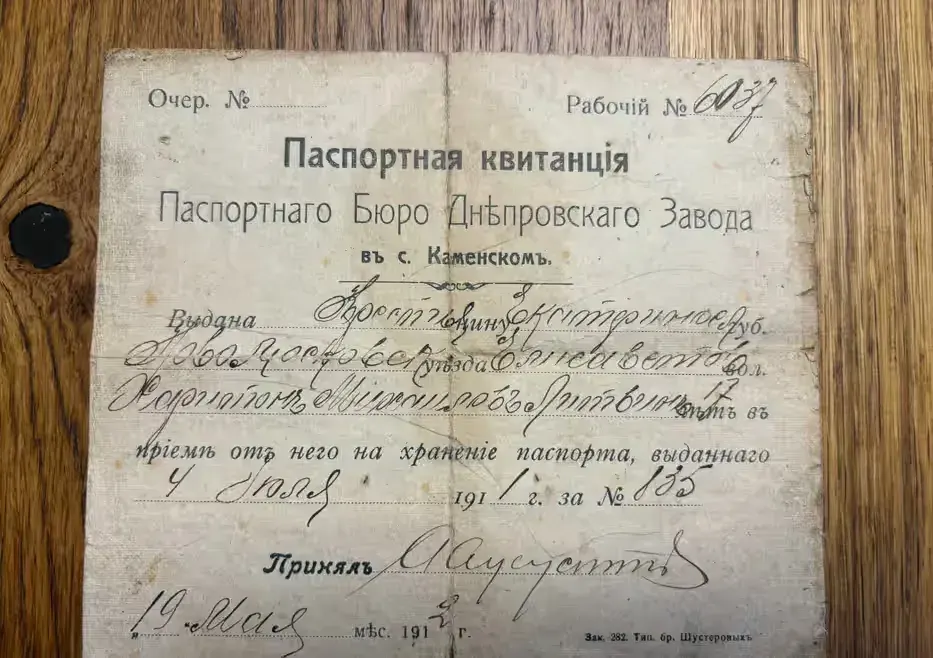 Очер. № Рабочій № 6037
Паспортная квитанція
Паспортнаго Бюро Днѣпровскаго Завода
въ с. Каменскомъ.
Выдана Крестьянину Екатеринос губ.
Новомосковск уѣзда Елисаветов вол.
Харитонъ Михаиловъ Литвин 17 лѣтъ въ
пріемѣ отъ него на храненіе паспорта, выданнаго
4 Юля 1911 г. за № 835
Принялъ
„19 Мая мѣс. 1912 г.
Зак. 282. Тип. бр. Шустеровыхъ